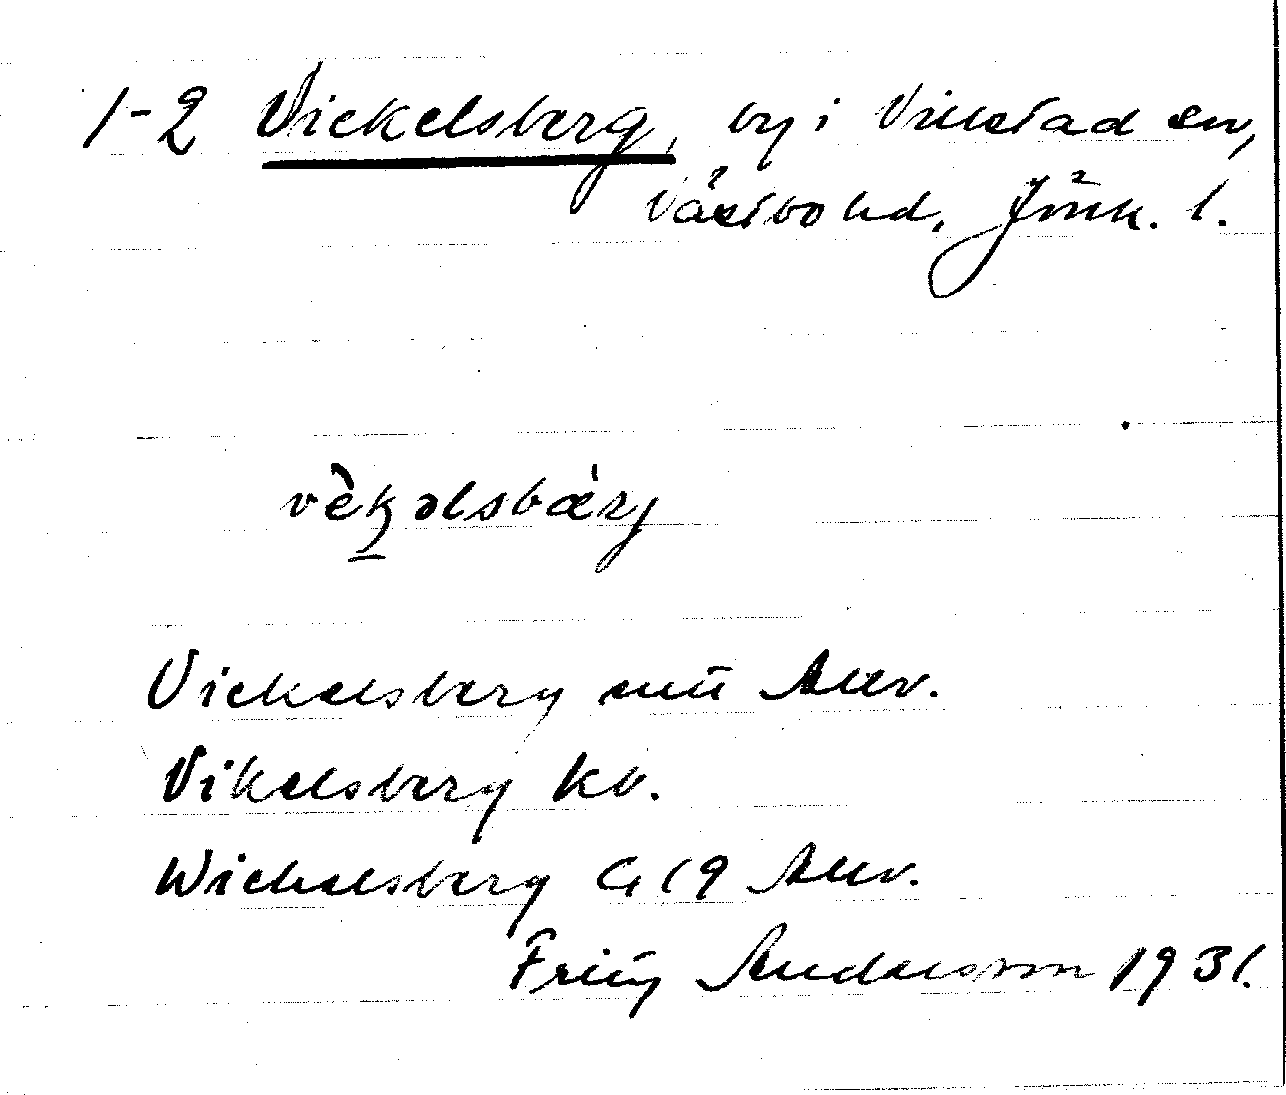 1-2 Vickelsberg, by i Villstad sn,
Västbo hd, Jönk. l.
vèkəlsbær̀j
Vickelsberg enl Allv.
Vikelsberg kb.
Wickelsberg G 19 Allv.
Andersson 1931.